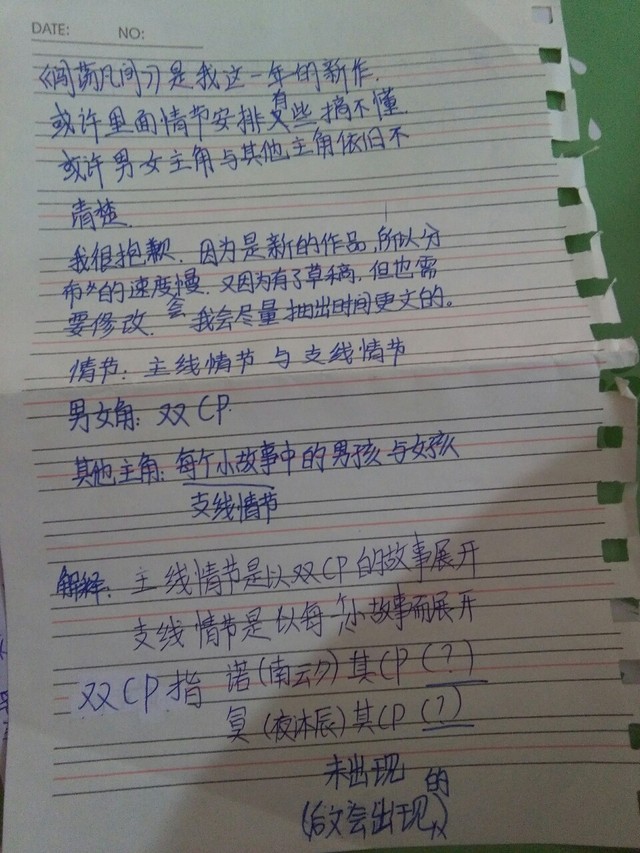 DATE: NO:
《闯荡凡间》是我这一年的新作.
或许里面情节安排有些搞不懂.
或许男女主角与其他主角依旧不
清楚.
我很抱歉. 因为是新的作品,所以分
布的速度慢. 又因为有了草稿,但也需
要修改. 会我会尽量抽出时间更文的。
情节: 主线情节与支线情节
男女角: 双CP.
其他主角: 每个小故事中的男孩与女孩
支线情节
解释: 主线情节是以双CP的故事展开
支线情节是以每个小故事而展开
双CP指 诺(南云)其CP(?)
(夜沐辰)其CP(?)
未出现
(后文会出现的)